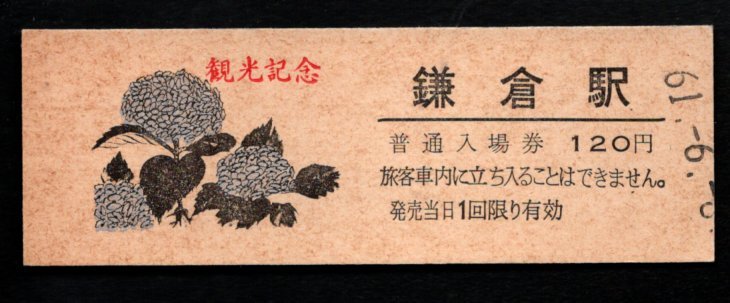 観光記念
鎌倉駅
普通入場券 120円
旅客車内に立ち入ることはできません。
発売当日1回限り有効
61.-6.